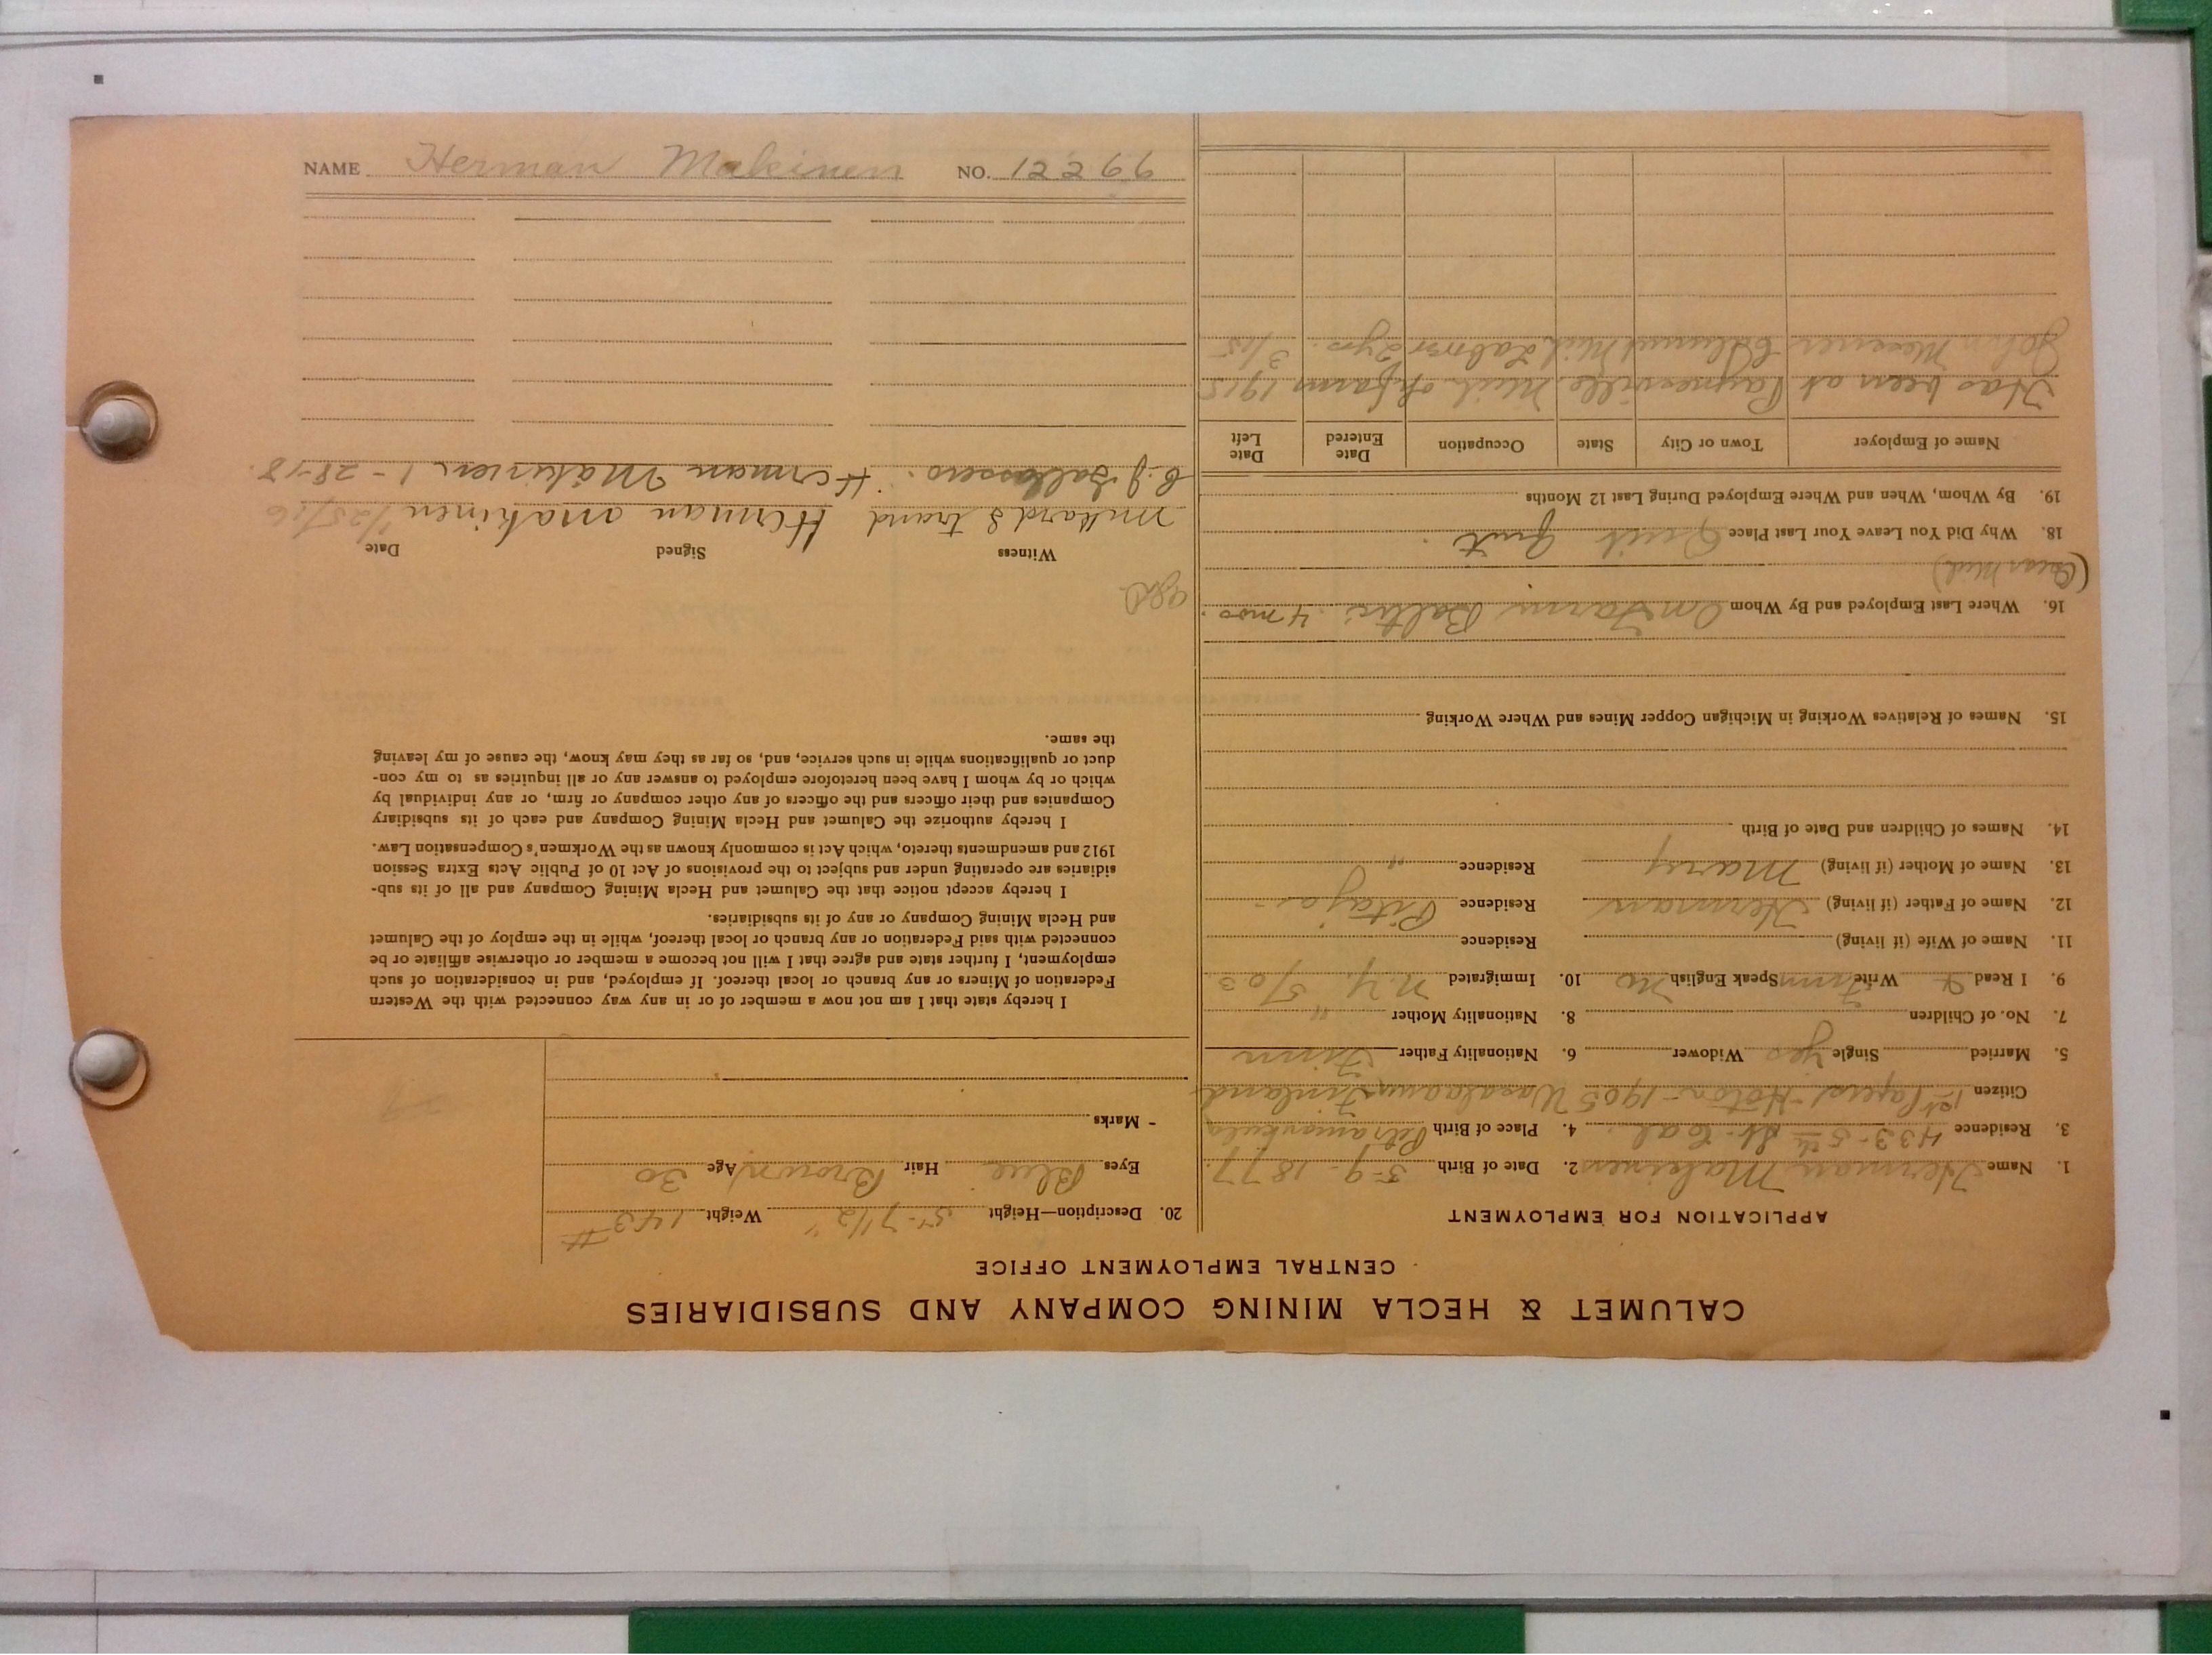 NAME Herman Makinen NO. 12266
CALUMET & HECLA MINING COMPANY AND SUBSIDIARIES
CENTRAL EMPLOYMENT OFFICE
APPLICATION FOR EMPLOYMENT
1. Name Herman Makinen 2. Date of Birth 5-9-1877.
3. Residence 433-5th St. Cal. 4. Place of Birth
Citizen 1st Papers-Hoton-1905 Wasalaani Finland
5. Married Single Yes Widower 6. Nationality Father Finn
7. No. of Children 8. Nationality Mother "
9. I Read & Write Finn Speak English No 10. Immigrated N.Y. 5/03
11. Name of Wife (if living) Residence
12. Name of Father (if living) Herman Residence
13. Name of Mother (if living) Mary Residence "
14. Names of Children and Date of Birth
15. Names of Relatives Working in Michigan Copper Mines and Where Working
16. Where Last Employed and By Whom On Farm Baltic 4 mos.
18. Why Did You Leave Your Last Place Quit Quit
19. By Whom, When and Where Employed During Last 12 Months
Name of Employer Town or City State Occupation Date Entered Date Left
Has been at Paynesville Mich. on farm 1915
John Messner Calumet Mich Labor 2 yrs. 3/15
20. Description—Height 5'-7 1/2" Weight 143#
Eyes Blue Hair Brown Age 30
Marks
I hereby state that I am not now a member of or in any way connected with the Western
Federation of Miners or any branch or local thereof. If employed, and in consideration of such
employment, I further state and agree that I will not become a member or otherwise affiliate or be
connected with said Federation or any branch or local thereof, while in the employ of the Calumet
and Hecla Mining Company or any of its subsidiaries.
I hereby accept notice that the Calumet and Hecla Mining Company and all of its sub-
sidiaries are operating under and subject to the provisions of Act 10 of Public Acts Extra Session
1912 and amendments thereto, which Act is commonly known as the Workmen's Compensation Law.
I hereby authorize the Calumet and Hecla Mining Company and each of its subsidiary
Companies and their officers and the officers of any other company or firm, or any individual by
which or by whom I have been heretofore employed to answer any or all inquiries as to my con-
duct or qualifications while in such service, and, so far as they may know, the cause of my leaving
the same.
Witness Signed Date
Millard S Trand Herman Makinen 1/25/16
Herman Makinen 1-28-18.